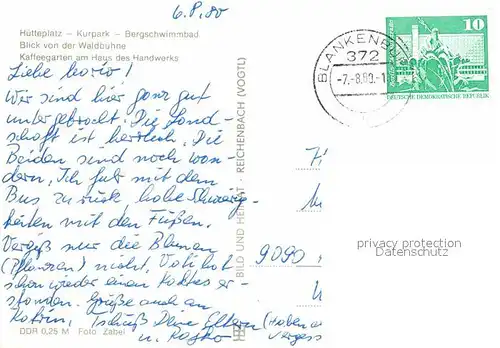 6.8.80
Hütteplatz – Kurpark – Bergschwimmbad
Blick von der Waldbühne
Kaffeegarten am Haus des Handwerks
Liebe
Wir sind hier ganz gut
untergebracht. Die Land-
schaft ist herrlich. Die
Beiden sind noch wan-
dern. Ich fuhr mit dem
Bus zurück, habe Schwierig-
keiten mit den Füßen.
Vergiß nur die Blumen
(Pflanzen) nicht. Vati hat
schon wieder einen Kaktus er-
standen. Grüße auch an
Katrin. Tschüß Deine Eltern
u.
DDR 0,25 M Foto Zabel
BILD UND HEIMAT · REICHENBACH (VOGTL)
BLANKENBU
372
-7.-8.80.-1
10
DEUTSCHE DEMOKRATISCHE REPUBLIK
9090
privacy protection
Datenschutz
(Haben
Vergess